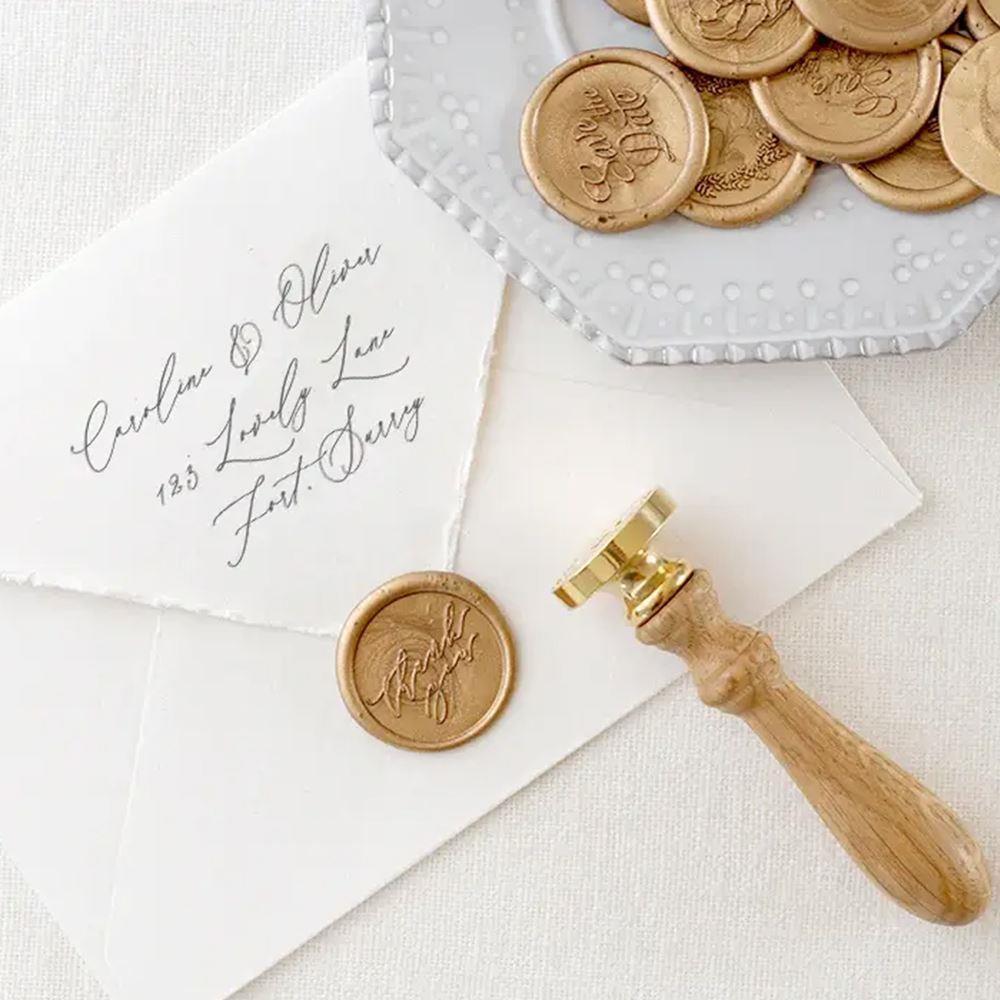 Caroline & Oliver
123 Lovely Lane
Fort. Surrey
thank
you
Save
the
Date
Save